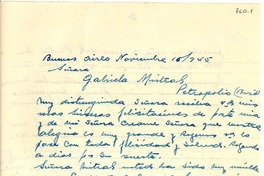 760.1
Buenos Aires Noviembre 15/945
Señora
Gabriela Mistral
Petropolis (Brasil
Muy distinguida Señora reciba
sas felicitaciones de parte mia
y de mi Señora Creame Señora que nuestra
alegria es muy grande y Rogamos
pase con toda felicidad y Salud. Rogando
a dios por su suerte.
Señora Mistral usted ha sido muy